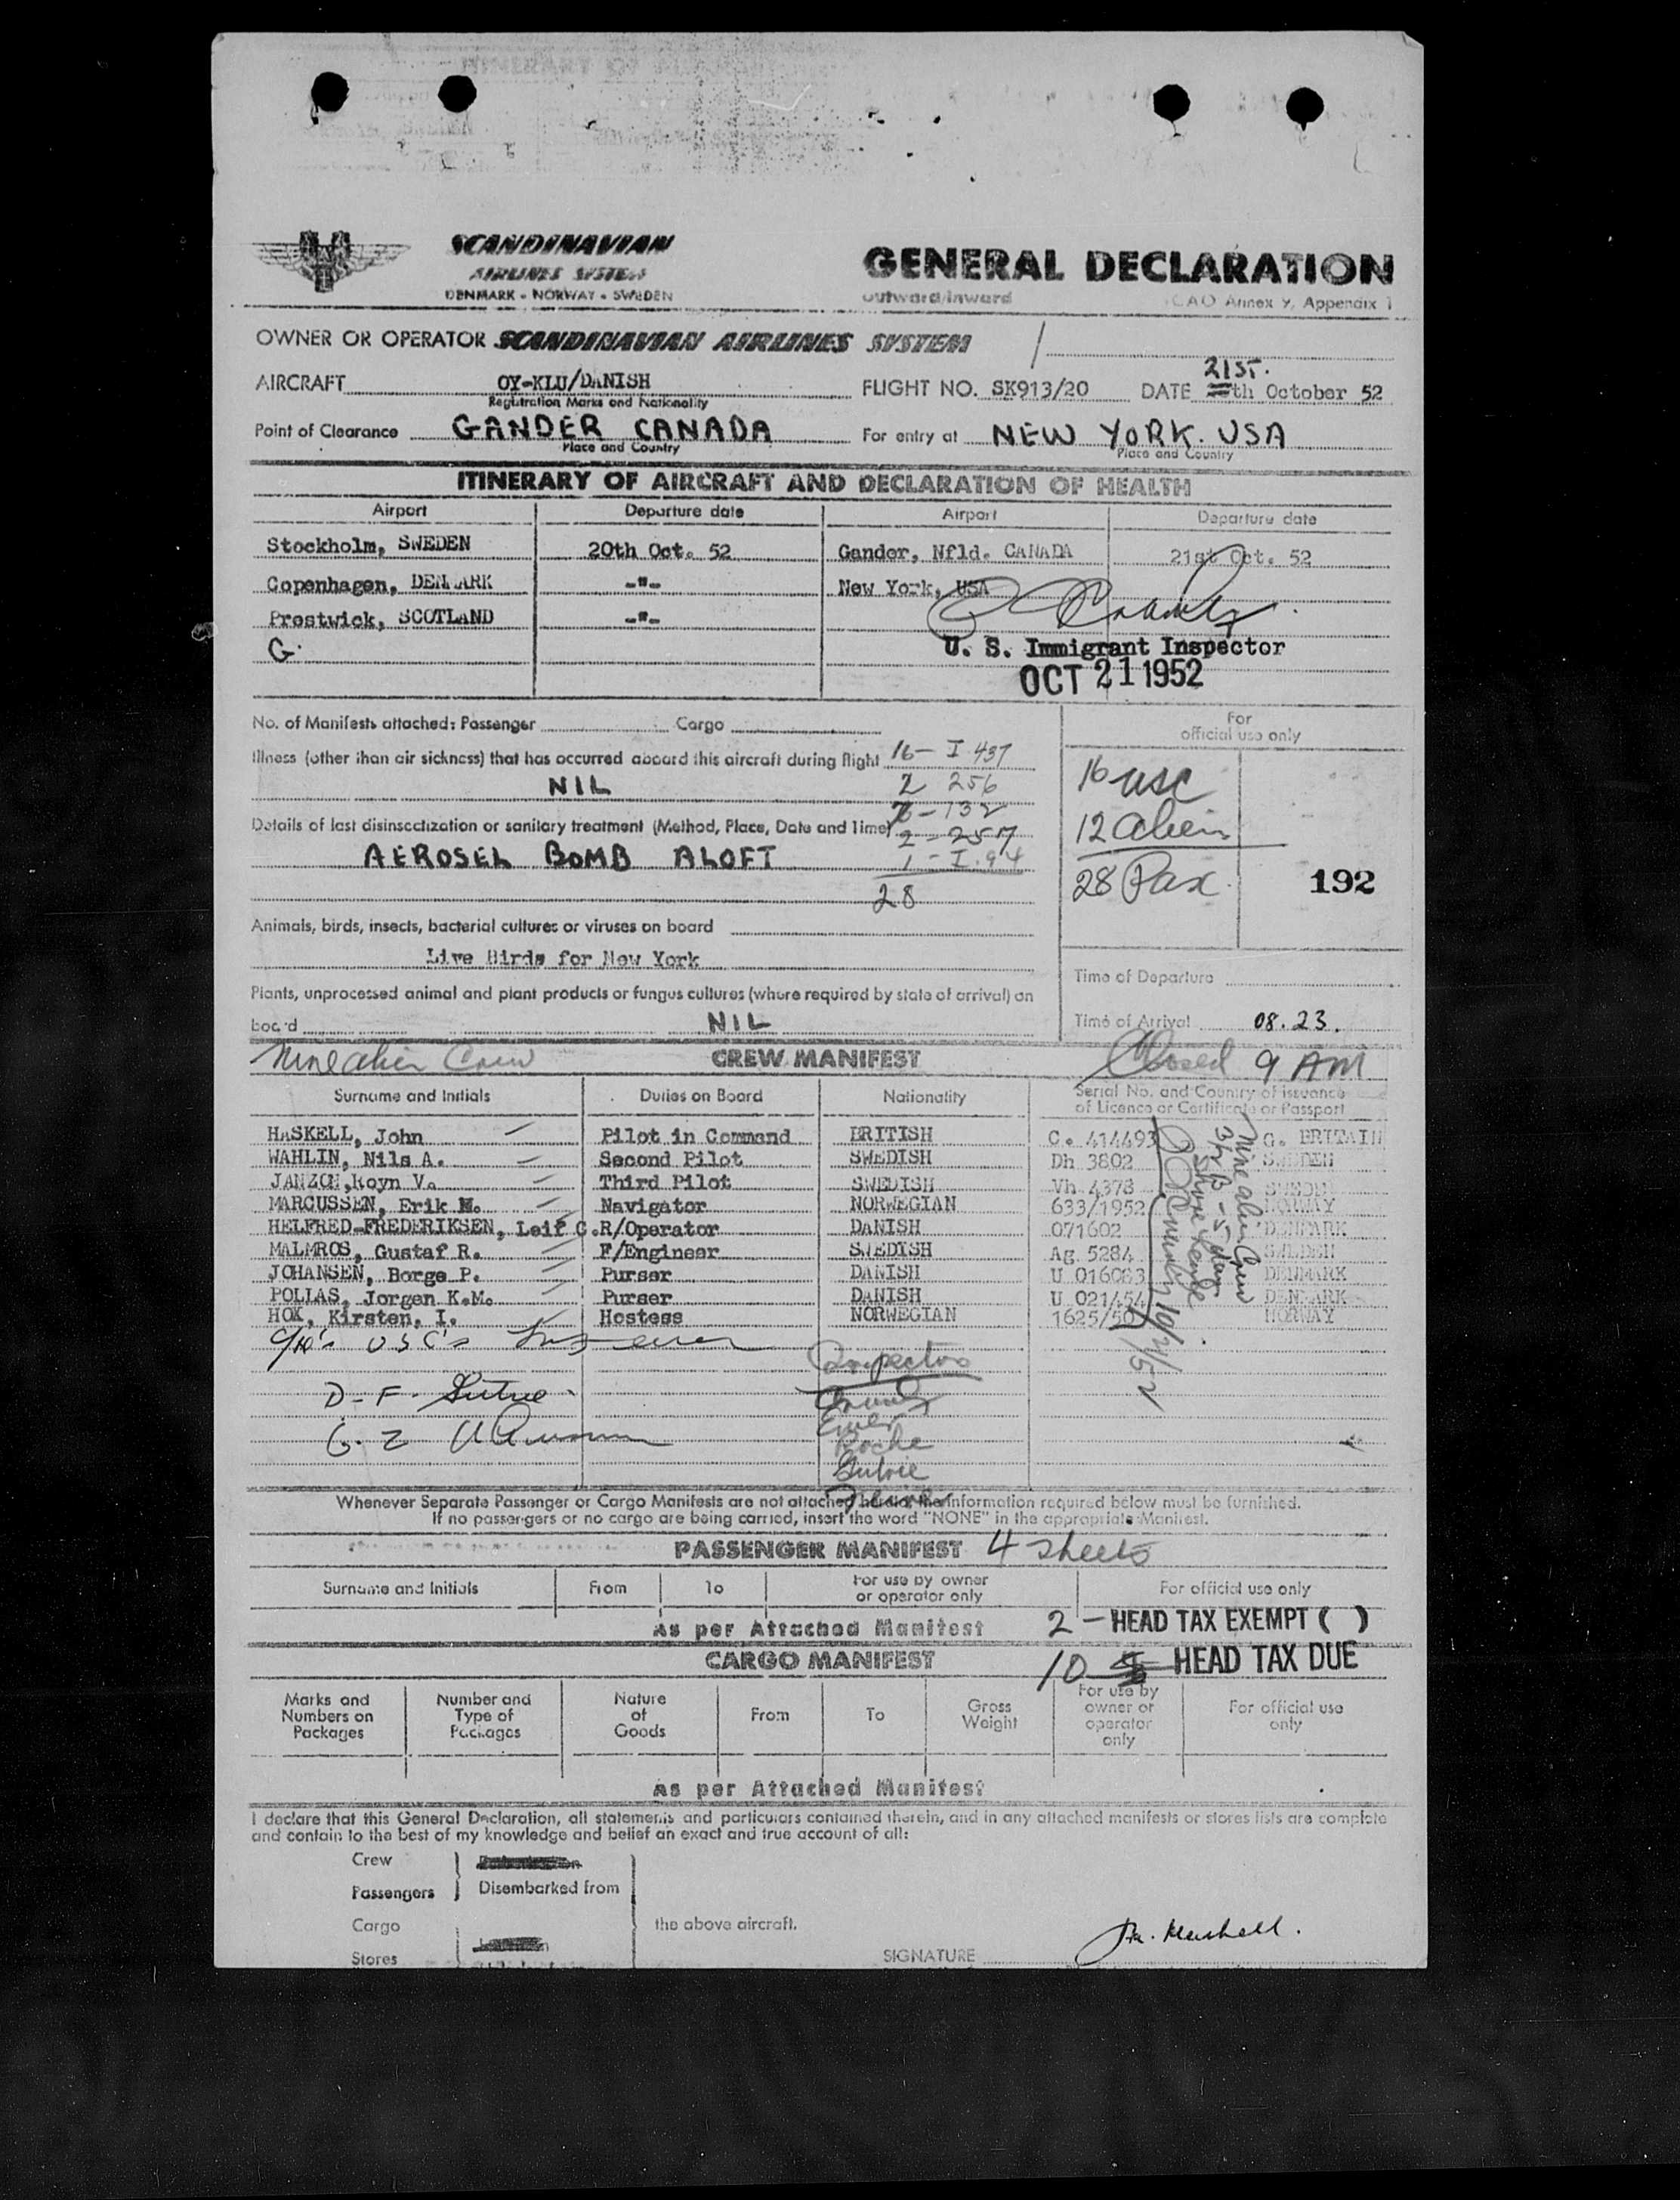 SCANDINAVIAN
AIRLINES SYSTEM
DENMARK - NORWAY - SWEDEN
GENERAL DECLARATION
outward/inward
ICAO Annex 9, Appendix 1
OWNER OR OPERATOR SCANDINAVIAN AIRLINES SYSTEM
21ST.
AIRCRAFT OY-KLU/DANISH FLIGHT NO. SK913/20 DATE th October 52
Registration Marks and Nationality
Point of Clearance GANDER CANADA For entry at NEW YORK. USA
Place and Country Place and Country
ITINERARY OF AIRCRAFT AND DECLARATION OF HEALTH
Airport Departure date Airport Departure date
Stockholm, SWEDEN 20th Oct. 52 Gander, Nfld. CANADA 21st Oct. 52
Copenhagen, DENMARK -"- New York, USA
Prestwick, SCOTLAND -"-
G.
U. S. Immigrant Inspector
OCT 21 1952
No. of Manifests attached: Passenger Cargo
For
official use only
Illness (other than air sickness) that has occurred aboard this aircraft during flight 16 - I 437
NIL 2 256
16 USC
7 - 132
Details of last disinsectization or sanitary treatment (Method, Place, Date and Time) 2 - 257
12 Alien
AEROSEL BOMB ALOFT 1 - I.94
28
28 Pax.
192
Animals, birds, insects, bacterial cultures or viruses on board
Live Birds for New York
Time of Departure
Plants, unprocessed animal and plant products or fungus cultures (where required by state of arrival) on
board NIL
Time of Arrival 08.23.
Nine alien Crew CREW MANIFEST Closed 9 AM
Surname and Initials Duties on Board Nationality Serial No. and Country of issuance
of Licence or Certificate or Passport
HASKELL, John Pilot in Command BRITISH C. 414493 G. BRITAIN
WAHLIN, Nils A. Second Pilot SWEDISH Dh 3802 SWEDEN
JANZON, Royn V. Third Pilot SWEDISH Vh 4378 SWEDEN
MARCUSSEN, Erik M. Navigator NORWEGIAN 633/1952 NORWAY
HELFRED-FREDERIKSEN, Leif C. R/Operator DANISH 071602 DENMARK
MALMROS, Gustaf R. F/Engineer SWEDISH Ag. 5284 SWEDEN
JOHANSEN, Borge P. Purser DANISH U 016083 DENMARK
POLLAS, Jorgen K.M. Purser DANISH U 021454 DENMARK
HOK, Kirsten, I. Hostess NORWEGIAN 1625/50 NORWAY
Nine alien Crew
10/21/52
USC's
Inspectors
D. F. Gutrie
Ewer
Roche
Gutrie
Whenever Separate Passenger or Cargo Manifests are not attached hereto, the information required below must be furnished.
If no passengers or no cargo are being carried, insert the word "NONE" in the appropriate Manifest.
PASSENGER MANIFEST 4 sheets
Surname and Initials From To For use by owner
or operator only For official use only
As per Attached Manifest 2 - HEAD TAX EXEMPT ( )
CARGO MANIFEST 10 HEAD TAX DUE
Marks and
Numbers on
Packages
Number and
Type of
Packages
Nature
of
Goods
From
To
Gross
Weight
For use by
owner or
operator
only
For official use
only
As per Attached Manifest
I declare that this General Declaration, all statements and particulars contained therein, and in any attached manifests or stores lists are complete
and contain to the best of my knowledge and belief an exact and true account of all:
Crew
Passengers Disembarked from
Cargo the above aircraft.
Stores SIGNATURE